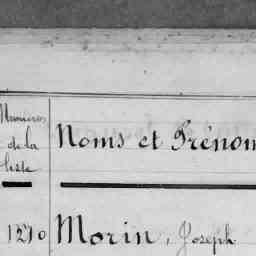 Numéros de la liste
Noms et Prénom
1210 Morin, Joseph